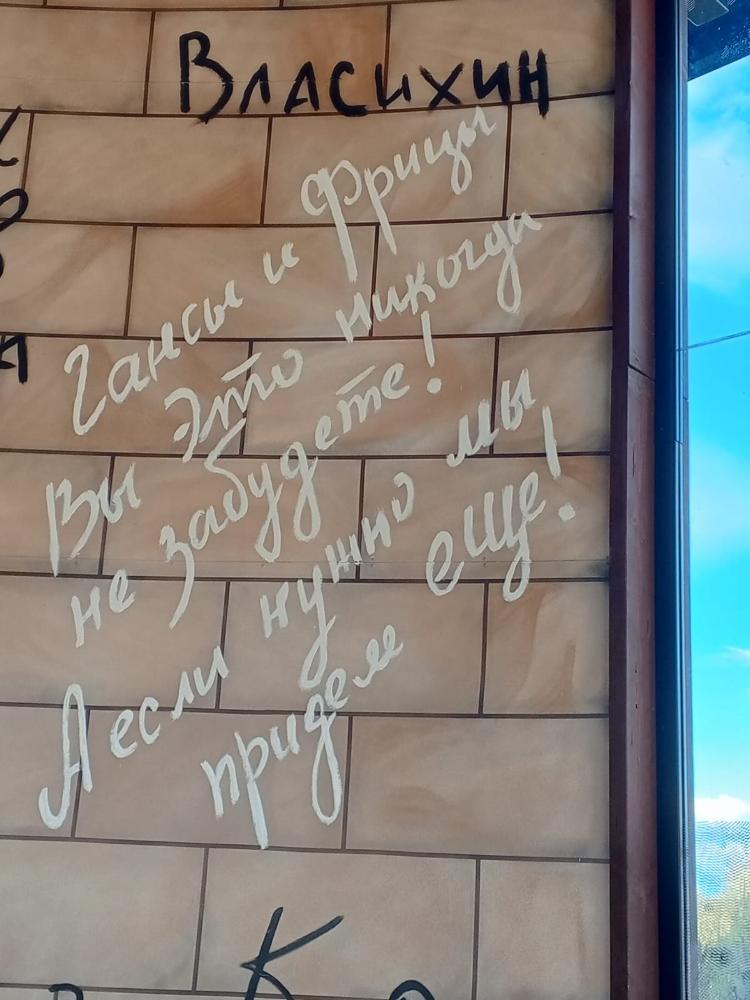 Власихин
Гансы и Фрицы
Вы это никогда
не забудете!
А если нужно мы
придем еще!